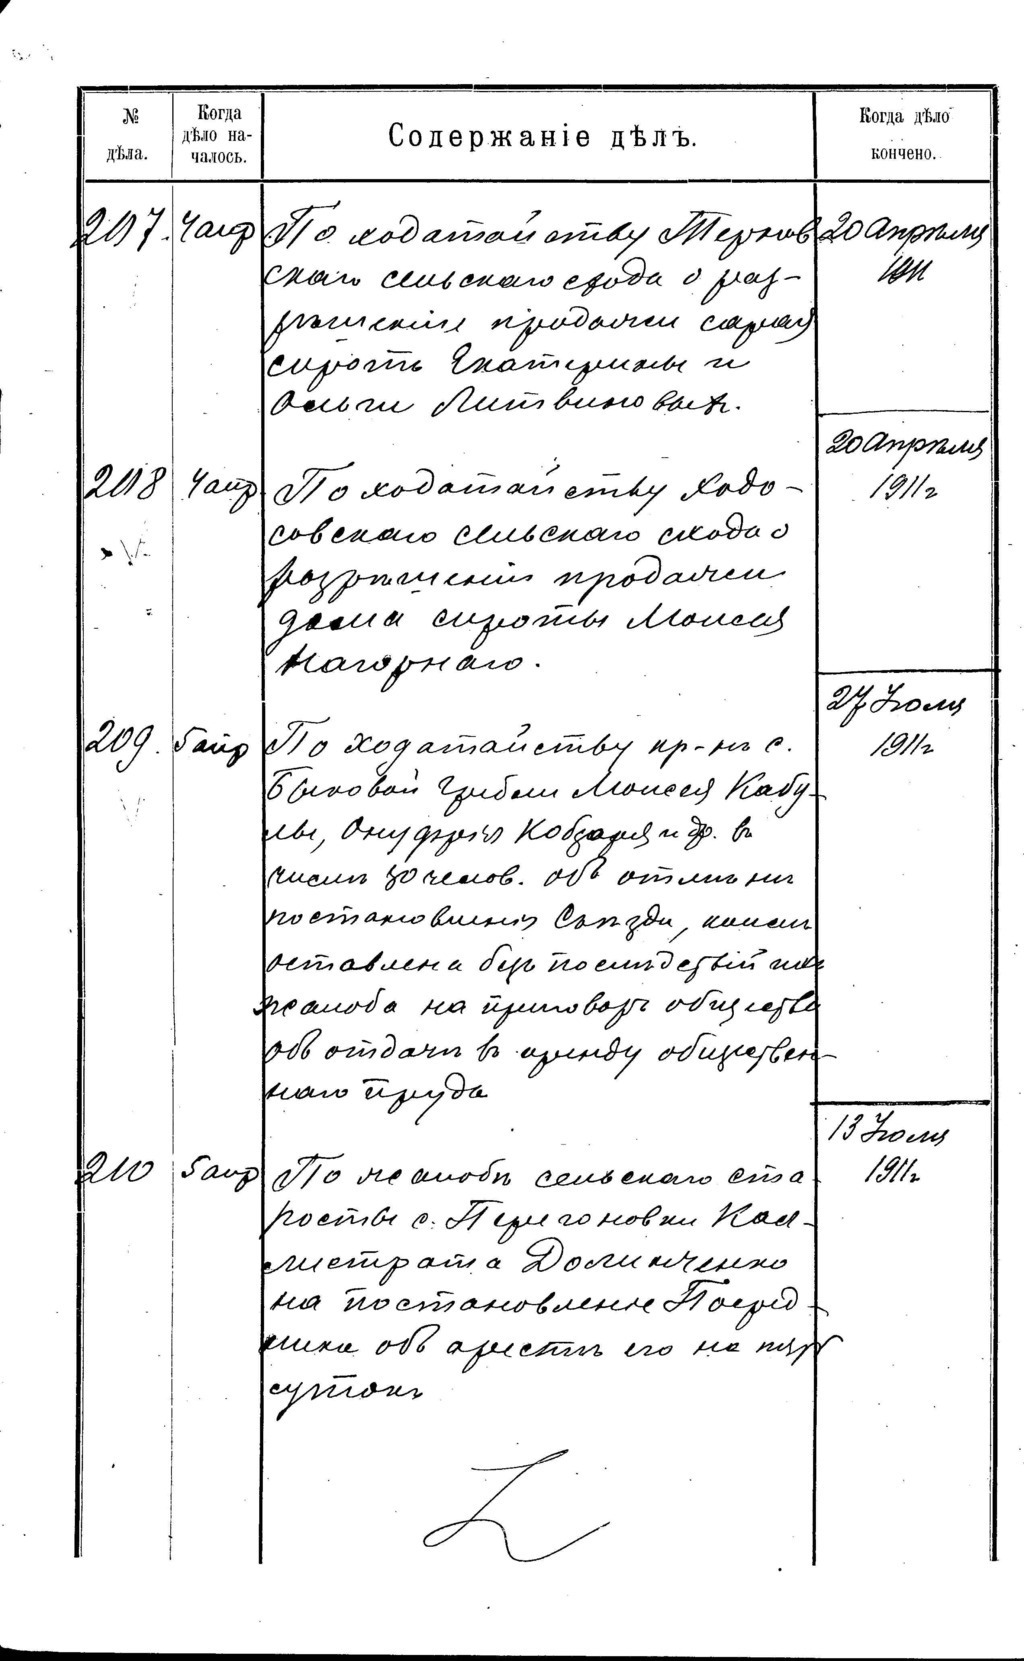 № дѣла.
Когда дѣло на-чалось.
Содержаніе дѣлъ.
Когда дѣло кончено.
207. 4 апр По ходатайству Тернов 20 Апрѣля
скаго сельскаго схода о раз- 1911
рѣшеніи продажи сарая
сиротъ Екатерины и
Ольги Литвиновыхъ.
20 Апрѣля
208 4 апр По ходатайству Ходо- 1911 г
совскаго сельскаго схода о
разрѣшеніи продажи
дома сироты Моисея
Нагорнаго.
27 Іюля
209. 5 апр По ходатайству кр-нъ с. 1911 г
Быковой Гребли Моисея Кабу-
лы, Онуфрія Кобзаря и др. въ
числѣ 30 челов. объ отмѣнѣ
постановленія Съѣзда, коимъ
оставлена безъ послѣдствій их
жалоба на приговоръ общества
объ отдачѣ въ аренду обществен-
наго пруда
13 Іюля
210 5 апр По жалобѣ сельскаго ста 1911 г
росты с. Перегоновки Кал-
листрата Долинченко
на постановленіе Посред-
ника объ арестѣ его на
сутокъ